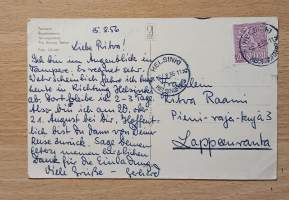 15.8.56
Liebe Ritva!
Ich bin im Augenblick in
Tampere. Es regnet sehr.
Wahrscheinlich fahre ich
heute in Richtung Helsinki
ab. Dort bleibe ich 2-3 Tage.
Also bin ich am 20. oder
21. August bei dir. Hoffent-
lich bist Du dann von Deiner
Reise zurück. Sage Deinen
Eltern meinen herzlichen
Dank für die Einladung
Viele Grüße -
HELSINKI
Ritva Raami
Pieni-raja-kyjä 3
Lappeenranta